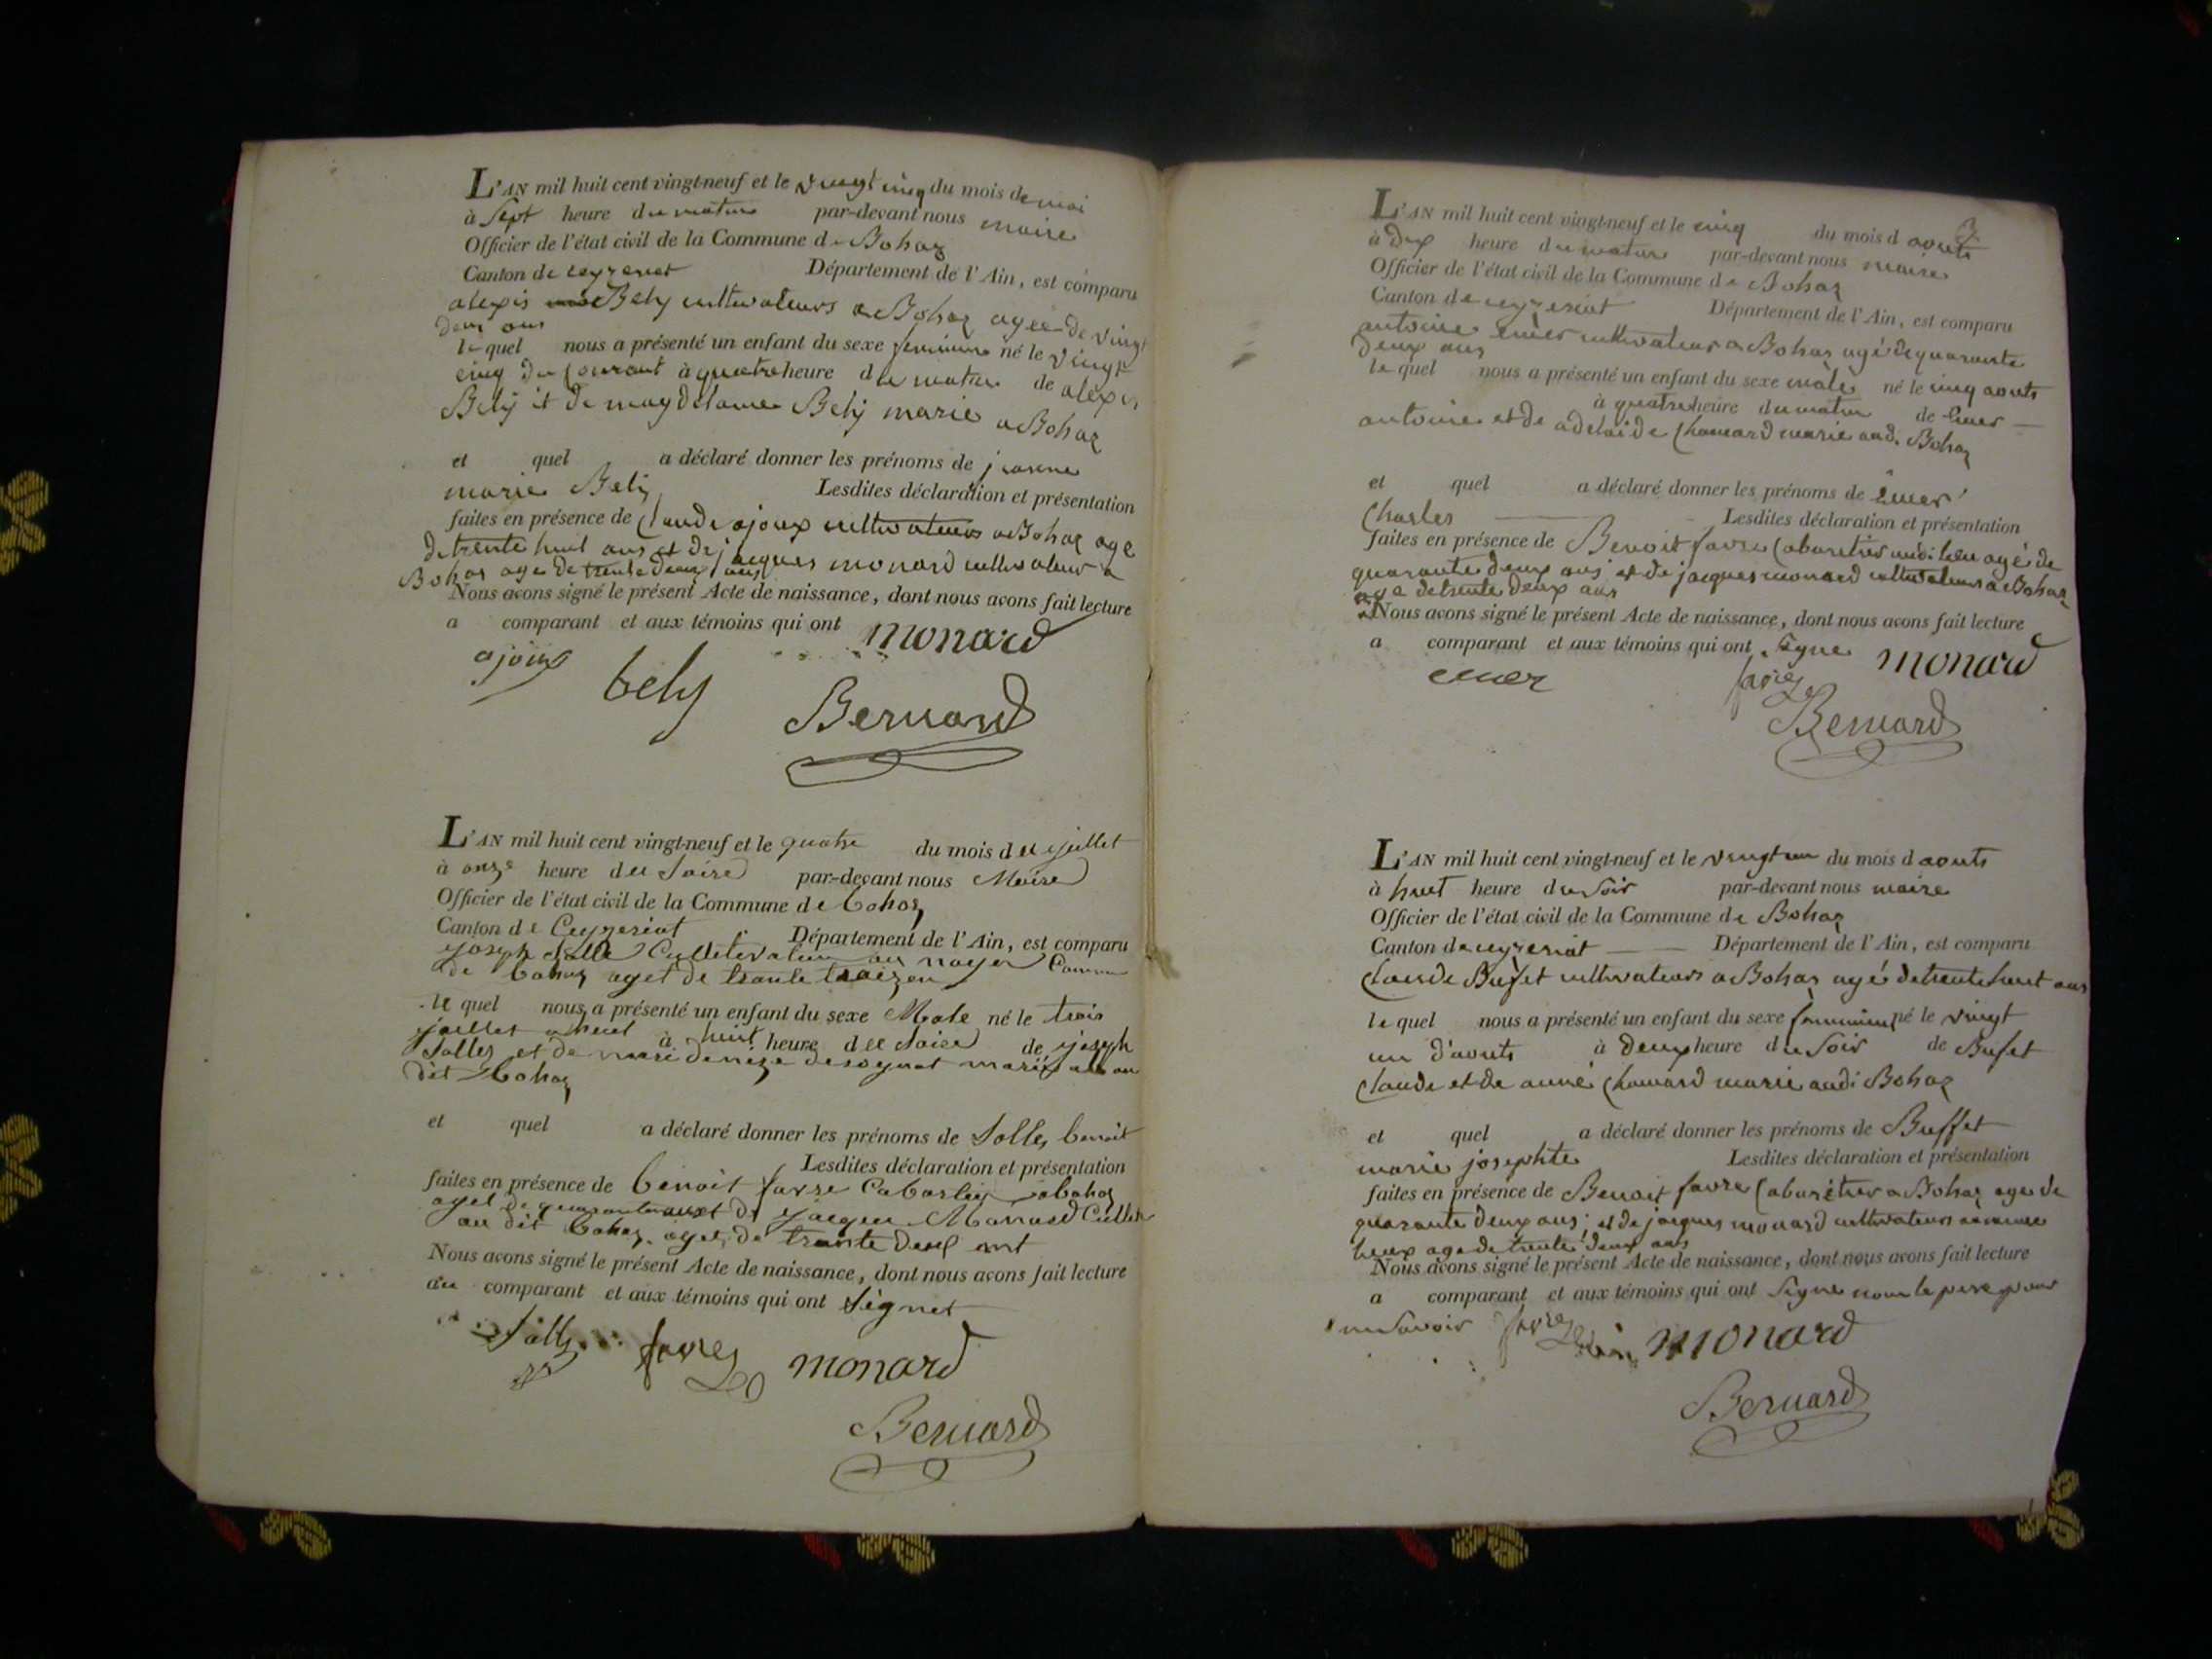 L'AN mil huit cent vingt-neuf et le vingt cinq du mois de mai
à Sept heure du matin par-devant nous maire
Officier de l'état civil de la Commune de Bohaz
Canton de ceyzeriat Département de l'Ain, est comparu
alexis Bely cultivateurs a Bohaz agee de vingt
deux ans
lequel nous a présenté un enfant du sexe feminin né le vingt
cinq du Courant à quatre heure du matin de alexis
Bely et de magdelaine Bely marie a Bohaz
et quel a déclaré donner les prénoms de jeanne
marie Bely Lesdites déclaration et présentation
faites en présence de Claude ajoux cultivateurs a Bohaz age
de trente huit ans et de jacques monard cultivateur a
Bohas age de trente deux ans
Nous avons signé le présent Acte de naissance, dont nous avons fait lecture
a comparant et aux témoins qui ont monard
ajoux bely
Bernard
L'AN mil huit cent vingt-neuf et le quatre du mois deu juillet
à onze heure deu Soire par-devant nous Maire
Officier de l'état civil de la Commune de bohaz
Canton de Ceyzeriat Département de l'Ain, est comparu
joseph Solle au noyer
de bohaz aget de trante
le quel nous a présenté un enfant du sexe Male né le trois
juillet à huit heure deu Soire de joseph
Solles et de marie au
dit Bohaz
et quel a déclaré donner les prénoms de Solles benoit
Lesdites déclaration et présentation
faites en présence de benoit favre a bohaz
aget de et de jacques Monard
au dit bohaz aget de trante deux ant
Nous avons signé le présent Acte de naissance, dont nous avons fait lecture
au comparant et aux témoins qui ont Signet
Solles favre monard
Bernard
3
L'AN mil huit cent vingt-neuf et le cinq du mois d aouts
à dix heure du matin par-devant nous maire
Officier de l'état civil de la Commune de Bohaz
Canton de ceyzeriat Département de l'Ain, est comparu
antoine emer cultivateur a Bohaz agé de quarante
deux ans
lequel nous a présenté un enfant du sexe male né le cinq aouts
à quatre heure du matin de Emer
antoine et de adelaide Chanard marie aud. Bohaz
et quel a déclaré donner les prénoms de Emer
Charles Lesdites déclaration et présentation
faites en présence de Benoit favre Cabaretier agé de
quarante deux ans et de jacques monard cultivateurs a Bohaz
age de trente deux ans
Nous avons signé le présent Acte de naissance, dont nous avons fait lecture
a comparant et aux témoins qui ont Signe monard
emer favre
Bernard
L'AN mil huit cent vingt-neuf et le vingt un du mois d aouts
à huit heure du Soir par-devant nous maire
Officier de l'état civil de la Commune de Bohaz
Canton de ceyzeriat Département de l'Ain, est comparu
Claude Bufet cultivateurs a Bohaz agé de trente huit ans
lequel nous a présenté un enfant du sexe feminin né le vingt
un d'aouts à deux heure du Soir de Bufet
Claude et de anne Chanard marie audi Bohaz
et quel a déclaré donner les prénoms de Buffet
marie josephte Lesdites déclaration et présentation
faites en présence de Benoit favre Cabaretier a Bohaz age de
quarante deux ans; et de jacques monard cultivateurs
lieux age de trente deux ans
Nous avons signé le présent Acte de naissance, dont nous avons fait lecture
a comparant et aux témoins qui ont Signe non le pere pour
ne Savoir favre monard
Bernard